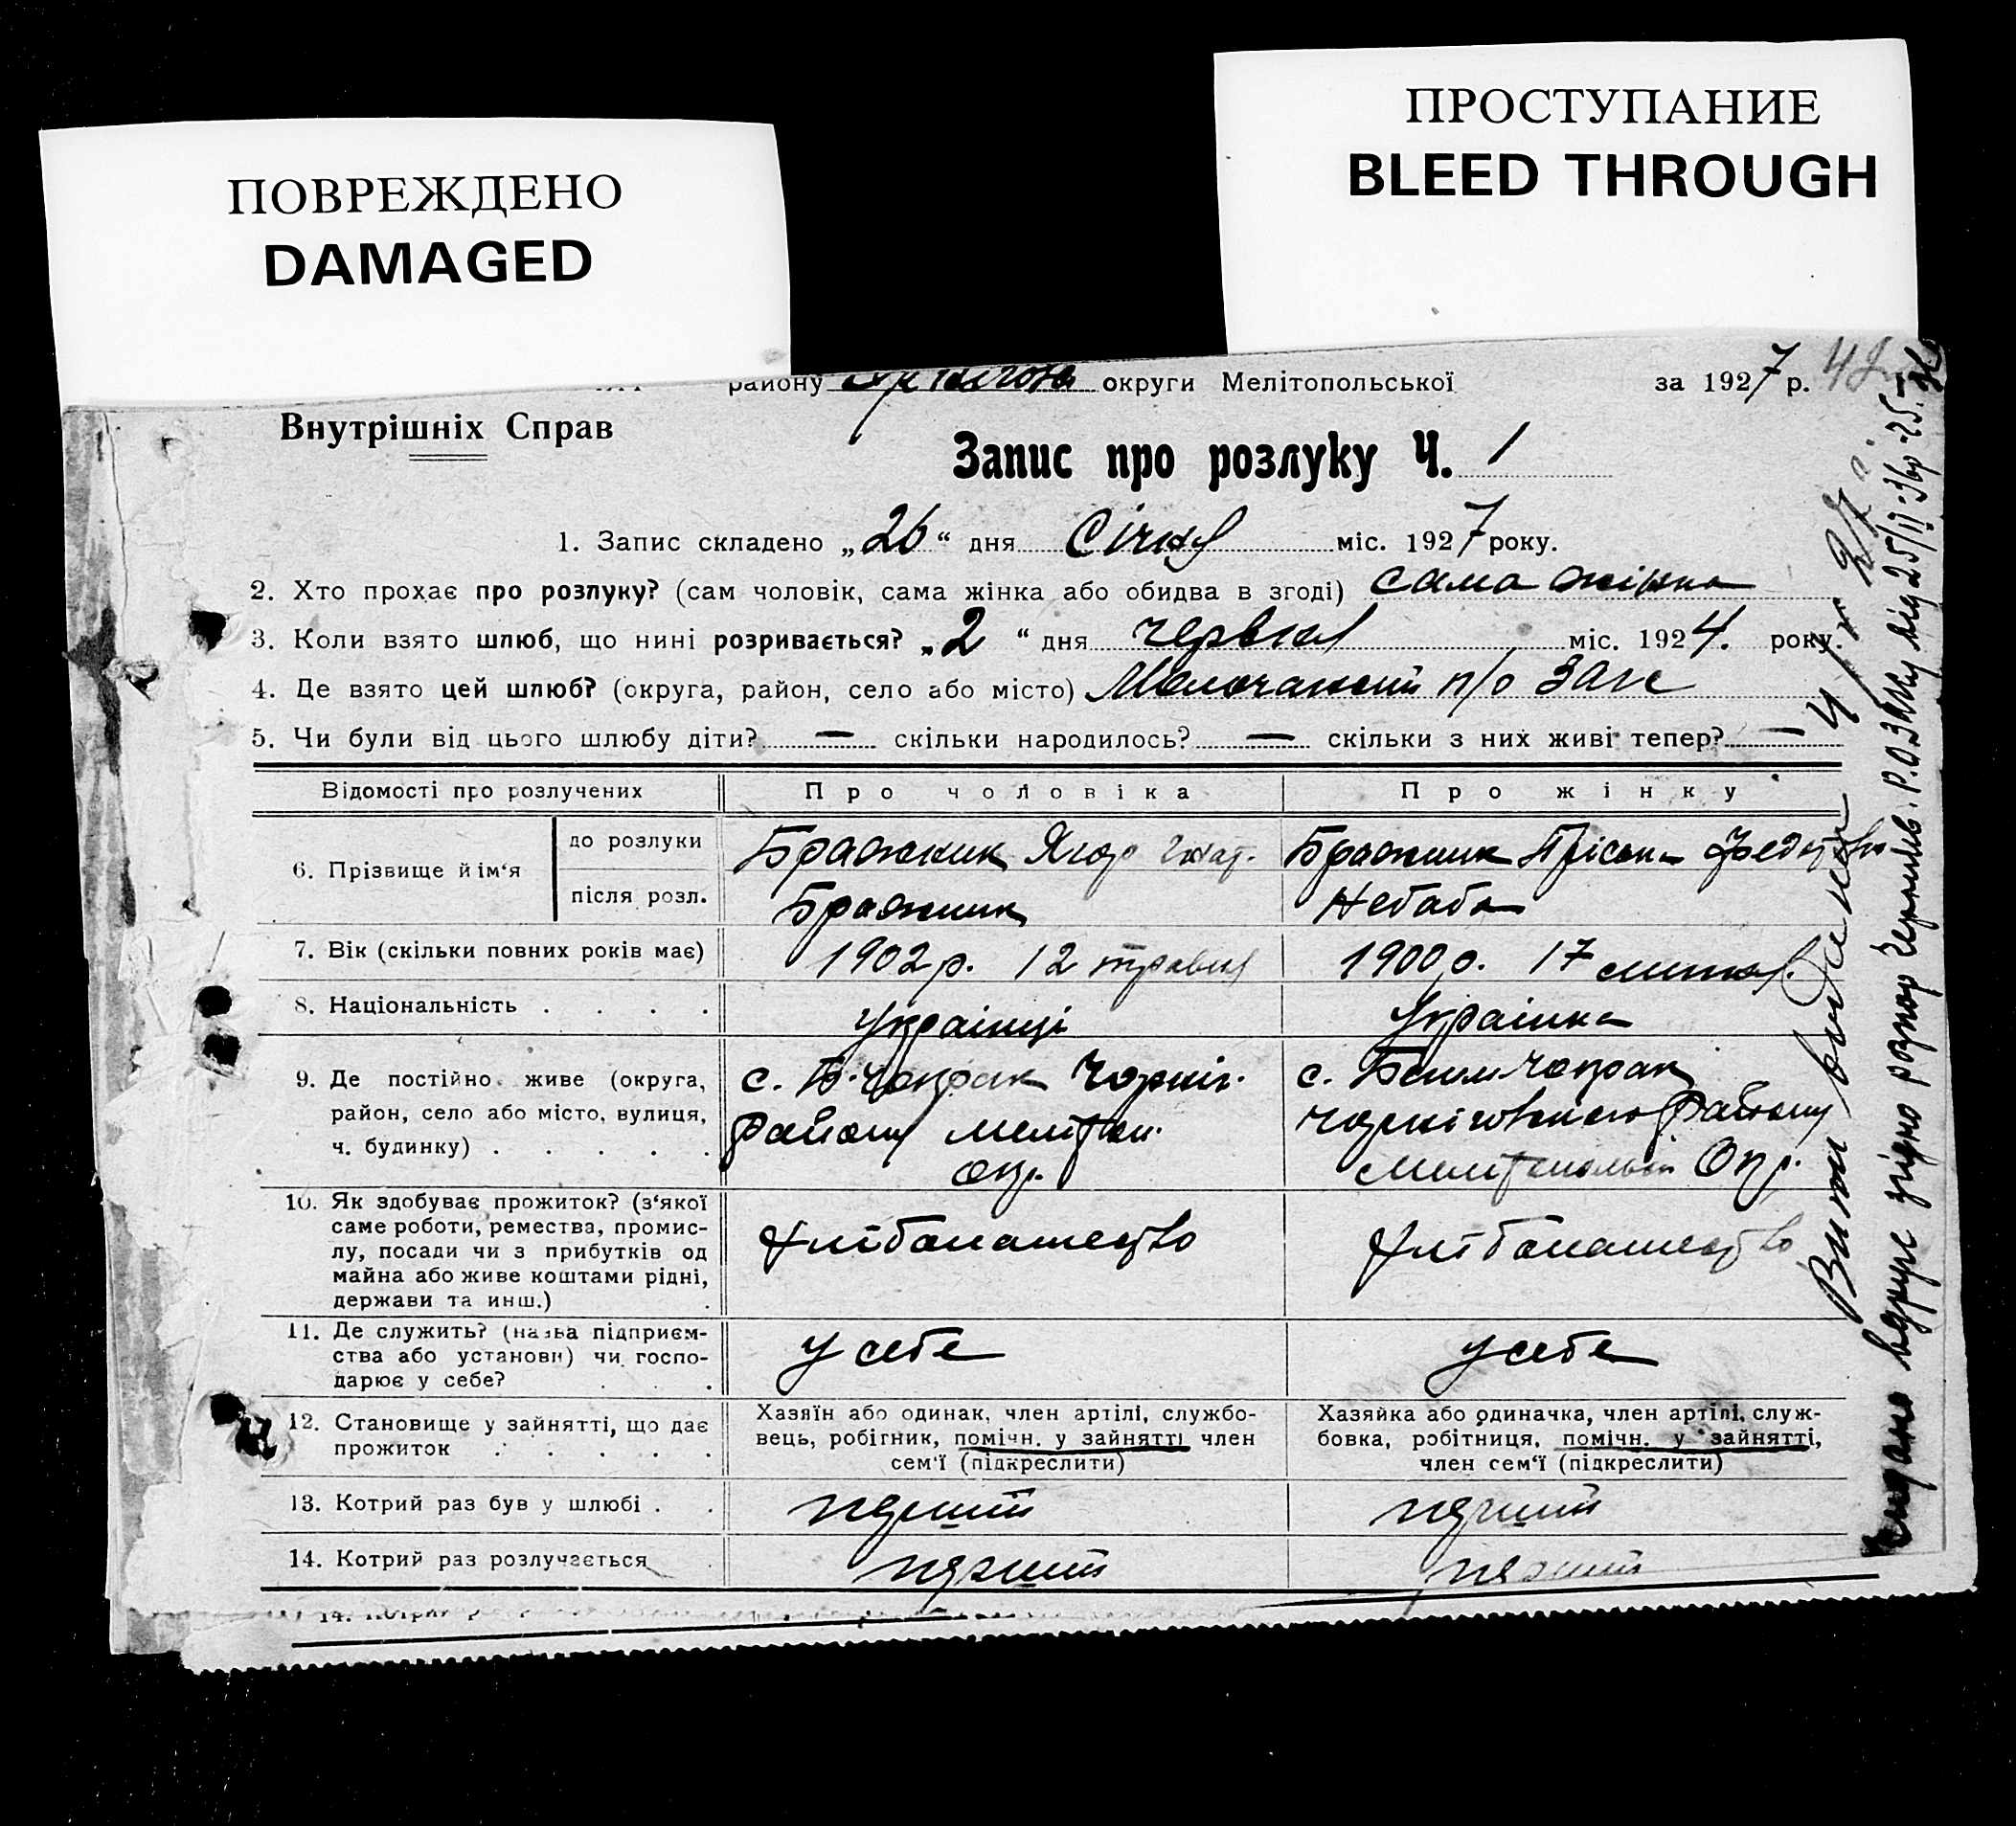 ПОВРЕЖДЕНО
DAMAGED
ПРОСТУПАНИЕ
BLEED THROUGH
району округи Мелітопольської за 1927 р.
Внутрішніх Справ
Запис про розлуку Ч. 1
1. Запис складено „26“ дня Січня міс. 1927 року.
2. Хто прохає про розлуку? (сам чоловік, сама жінка або обидва в згоді) сама жінка
3. Коли взято шлюб, що нині розривається? „2 “ дня червня міс. 1924. року.
4. Де взято цей шлюб? (округа, район, село або місто) Молочанский п/о Загс
5. Чи були від цього шлюбу діти? — скільки народилось? — скільки з них живі тепер? —
Відомості про розлучених Про чоловіка Про жінку
6. Прізвище й ім‘я
до розлуки Бражник Ягор Бражник Пріська
після розл. Бражник Небаба
7. Вік (скільки повних років має) 1902 р. 12 травня 1900 р. 17
8. Національність . . . . Українці Українка
9. Де постійно живе (округа, район, село або місто, вулиця, ч. будинку) . . . . .
с. Б. Чокрак Чорніг.
району Меліт
окр.
с. Чокрак
Чорніговського району
Окр.
10. Як здобуває прожиток? (з‘якої
саме роботи, ремества, промис-
лу, посади чи з прибутків од
майна або живе коштами рідні,
держави та инш.)
Хлібопашество Хлібопашество
11. Де служить? (назва підприєм-
ства або установи) чи госпо-
дарює у себе?
у себе у себе
12. Становище у зайнятті, що дає
прожиток . . . . .
Хазяїн або одинак, член артілі, службо-
вець, робітник, помічн. у зайнятті член
сем‘ї (підкреслити)
Хазяйка або одиначка, член артілі, служ-
бовка, робітниця, помічн. у зайнятті,
член сем‘ї (підкреслити)
13. Котрий раз був у шлюбі . . перший перший
14. Котрий раз розлучається перший перший
14. Котрий